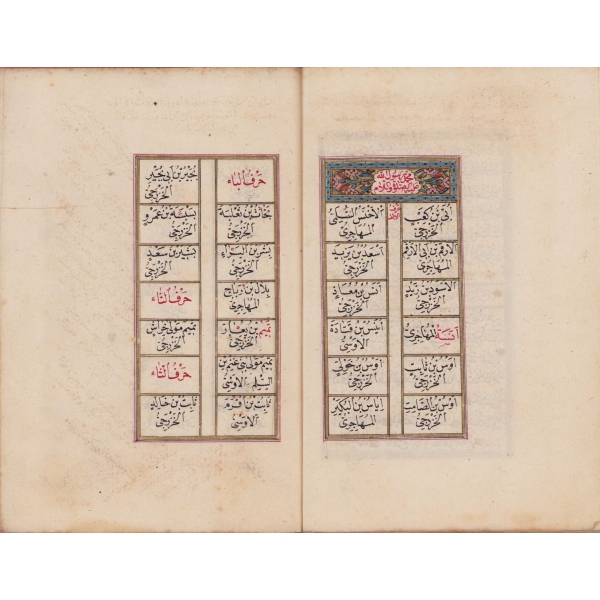 محمد رسول الله
عليه الصلوة والسلام
حرف
الالف
ابي بن كعب
الخزرجي
الاخنس السلمي
المهاجري
الارقم بن ابي الارقم
المهاجري
اسعد بن يزيد
الخزرجي
الاسود بن زيد
الخزرجي
انس بن معاذ
الخزرجي
انسة المهاجري
انيس بن قتادة
الاوسي
اوس بن ثابت
الخزرجي
اوس بن خولي
الخزرجي
اوس بن الصامت
الخزرجي
اياس بن البكير
المهاجري
حرف الباء
بجير بن ابي بجير
الخزرجي
بحاث بن ثعلبة
الخزرجي
بسبسة بن عمرو
الخزرجي
بشر بن البراء
الخزرجي
بشير بن سعد
الخزرجي
بلال بن رباح
المهاجري
حرف التاء
تميم بن يعار
الخزرجي
تميم مولى خراش
الخزرجي
تميم مولى بني غنم بن
السلم الاوسي
حرف الثاء
ثابت بن اقرم
الاوسي
ثابت بن خالد
الخزرجي